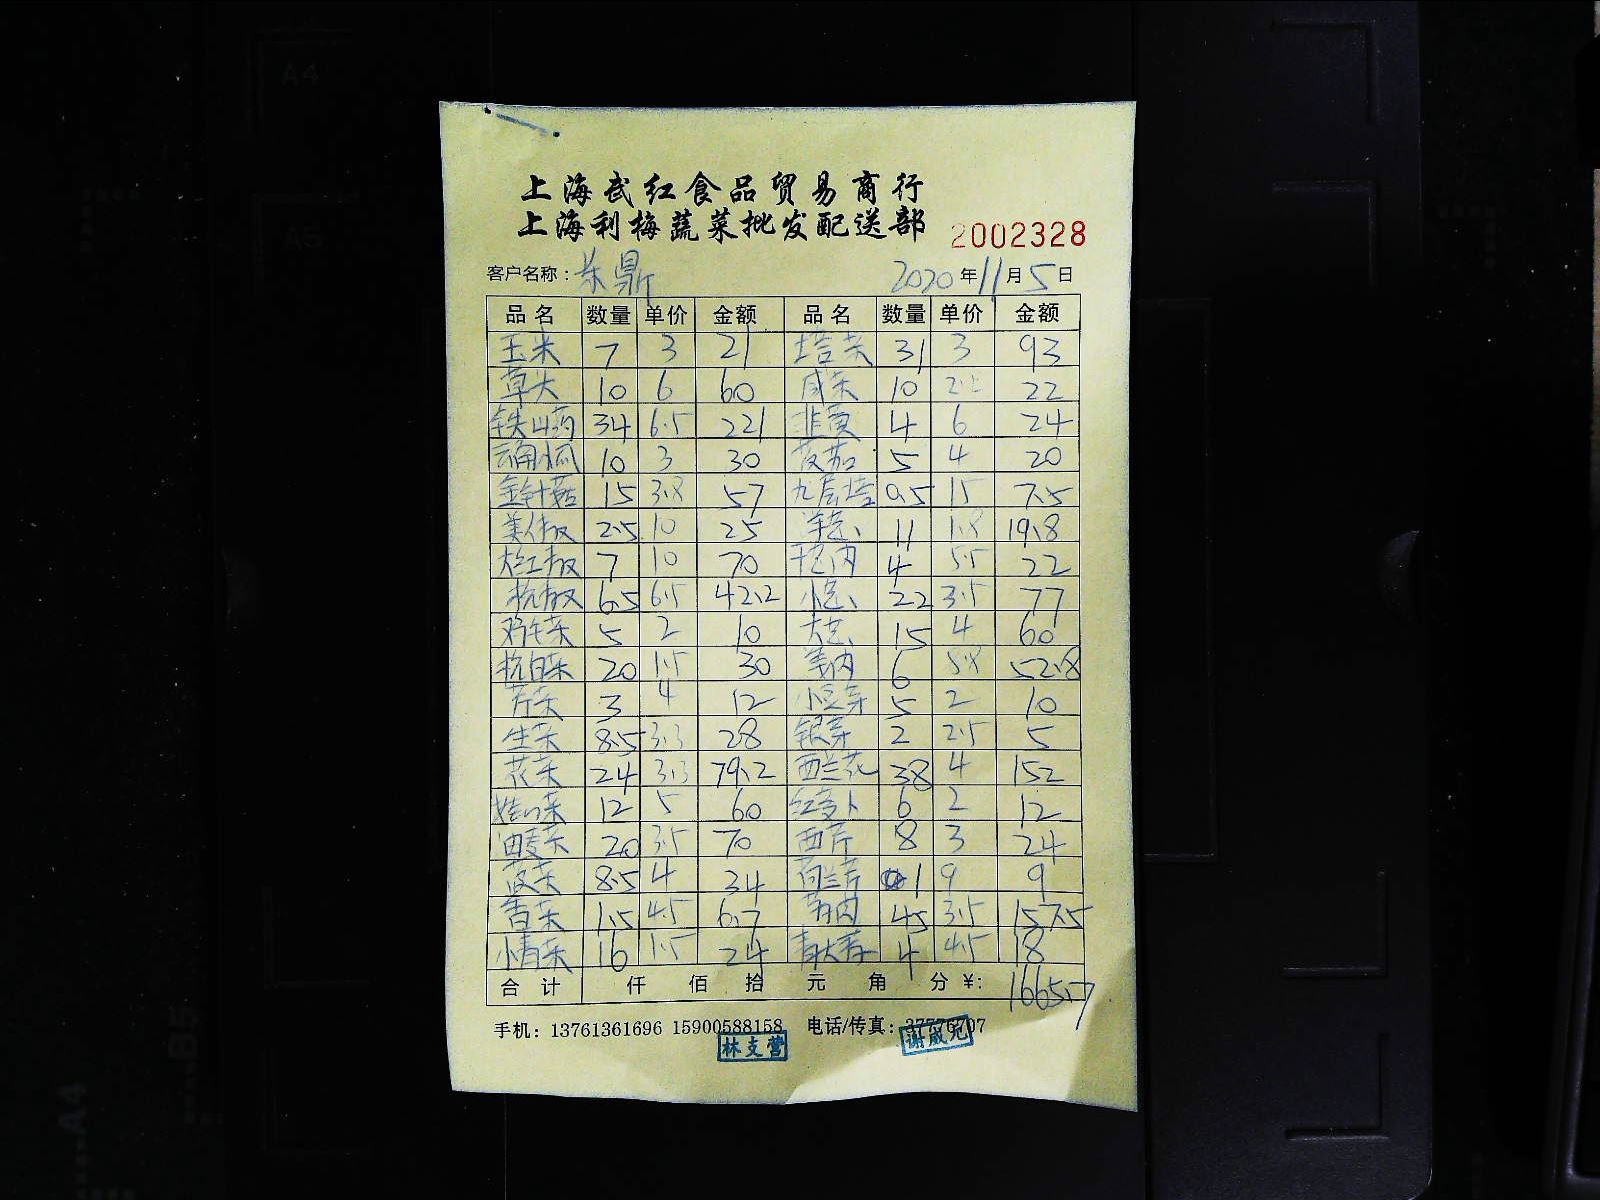 上海武红食品贸易商行
上海利梅蔬菜批发配送部 2002328
客户名称: 鼎 2020年11月5日
品名 数量 单价 金额 品名 数量 单价 金额
玉米 7 3 21 塔菜 31 3 93
草头 10 6 60 咸菜 10 2.2 22
铁山药 34 6.5 221 韭黄 4 6 24
10 3 30 5 4 20
金针菇 15 3.8 57 九层塔 0.5 15 7.5
美人椒 2.5 10 25 11 1.8 19.8
大红椒 7 10 70 4 5.5 22
杭椒 6.5 6.5 42.2 22 3.5 77
鸡毛菜 5 2 10 15 4 60
杭白菜 20 1.5 30 6 5.8 52.8
芹菜 3 4 12 小豆芽 5 2 10
生菜 8.5 3.3 28 银芽 2 2.5 5
花菜 24 3.3 79.2 西兰花 38 4 152
娃娃菜 12 5 60 红萝卜 6 2 12
油麦菜 20 3.5 70 西芹 8 3 24
菠菜 8.5 4 34 荷兰芹 1 9 9
香菜 1.5 4.5 6.7 45 3.5 157.5
小青菜 16 1.5 24 青大蒜 4 4.5 18
合计 仟 佰 拾 元 角 分 ¥: 1665.7
手机: 13761361696 15900588158 电话/传真: 37776707
林支营 谢咸元